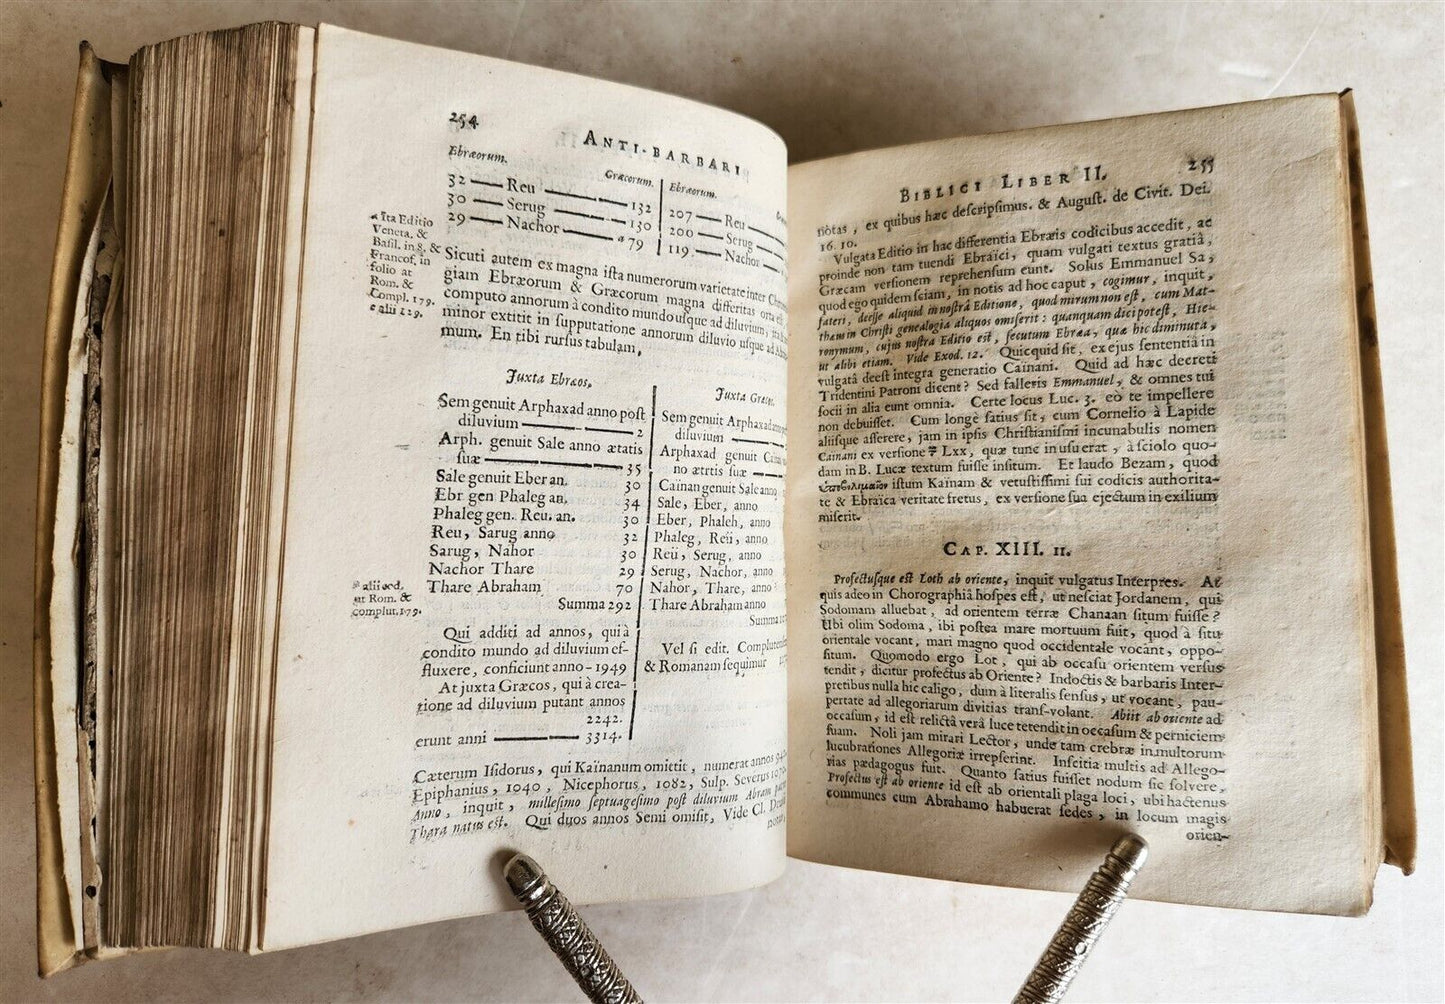 254
ANTI-BARBARI
Ebræorum.
Græcorum.
Ebræorum.
32 — Reu — 132
30 — Serug — 130
29 — Nachor — a 79
207 — Reu —
200 — Serug —
119 — Nachor —
a Ita Editio
Veneta. &
Basil. in 8. &
Francof. in
folio at
Rom. &
Compl. 179.
e alii 229.
Sicuti autem ex magna ista numerorum varietate inter
giam Ebræorum & Græcorum magna differitas orta
computo annorum à condito mundo usque ad diluvium,
minor extitit in supputatione annorum diluvio usque ad
mum. En tibi rursus tabulam,
Juxta Ebræos.
Sem genuit Arphaxad anno post
diluvium — 2
Arph. genuit Sale anno ætatis
suæ — 35
Sale genuit Eber an. 30
Ebr gen Phaleg an. 34
Phaleg gen. Reu. an. 30
Reu, Sarug anno 32
Sarug, Nahor 30
Nachor Thare 29
Thare Abraham 70
Summa 292
* alii æd.
ut Rom. &
complut. 179.
Qui additi ad annos, qui à
condito mundo ad diluvium ef-
fluxere, conficiunt anno - 1949
At juxta Græcos, qui à crea-
tione ad diluvium putant annos
2242.
erunt anni — 3314.
Juxta Græcos.
Sem genuit Arphaxad anno
diluvium —
Arphaxad genuit
no ætrtis suæ —
Caïnan genuit Sale anno
Sale, Eber, anno
Eber, Phaleh, anno
Phaleg, Reü, anno
Reü, Serug, anno
Serug, Nachor, anno
Nahor, Thare, anno
Thare Abraham anno
Summa
Vel si edit.
& Romanam sequimur
Cæterum Isidorus, qui Kaïnanum omittit, numerat annos
Epiphanius, 1040, Nicephorus, 1082, Sulp. Severus
Anno, inquit, millesimo septuagesimo post diluvium Abram
Thara natus est. Qui duos annos Semi omisit, Vide Cl.
BIBLICI LIBER II.
255
notas, ex quibus hæc descripsimus. & August. de Civit. Dei.
16. 10.
Vulgata Editio in hac differentia Ebræis codicibus accedit, ac
proinde non tam tuendi Ebraïci, quam vulgati textus gratiâ,
Græcam versionem reprehensum eunt. Solus Emmanuel Sa,
quod ego quidem sciam, in notis ad hoc caput, cogimur, inquit,
fateri, deesse aliquid in nostrâ Editione, quod mirum non est, cum Mat-
thæus in Christi genealogia aliquos omiserit: quanquam dici potest, Hie-
ronymum, cujus nostra Editio est, secutum Ebræa, quæ hic diminuta,
ut alibi etiam. Vide Exod. 12. Quicquid sit, ex ejus sententiâ in
vulgatâ deest integra generatio Caïnani. Quid ad hæc decreti
Tridentini Patroni dicent? Sed falleris Emmanuel, & omnes tui
socii in alia eunt omnia. Certe locus Luc. 3. eò te impellere
non debuisset. Cum longè satius sit, cum Cornelio à Lapide
aliisque asserere, jam in ipsis Christianismi incunabulis nomen
Cainani ex versione τ Lxx, quæ tunc in usu erat, à sciolo quo-
dam in B. Lucæ textum fuisse insitum. Et laudo Bezam, quod
ὑποβολιμαῖον istum Kaïnam & vetustissimi sui codicis authorita-
te & Ebraïca veritate fretus, ex versione sua ejectum in exilium
miserit.
CAP. XIII. 11.
Profectusque est Loth ab oriente, inquit vulgatus Interpres. At
quis adeo in Chorographiâ hospes est, ut nesciat Jordanem, qui
Sodomam alluebat, ad orientem terræ Chanaan situm fuisse?
Ubi olim Sodoma, ibi postea mare mortuum fuit, quod à situ
orientale vocant, mari magno quod occidentale vocant, oppo-
situm. Quomodo ergo Lot, qui ab occasu orientem versus
tendit, dicitur profectus ab Oriente? Indoctis & barbaris Inter-
pretibus nulla hic caligo, dum à literalis sensus, ut vocant, pau-
pertate ad allegoriarum divitias trans-volant. Abiit ab oriente ad
occasum, id est relictâ verâ luce tetendit in occasum & perniciem
suam. Noli jam mirari Lector, unde tam crebræ in multorum
lucubrationes Allegoriæ irrepserint. Inscitia multis ad Allego-
rias pædagogus fuit. Quanto satius fuisset nodum sic solvere,
Profectus est ab oriente id est ab orientali plaga loci, ubi hactenus
communes cum Abrahamo habuerat sedes, in locum magis
orien-